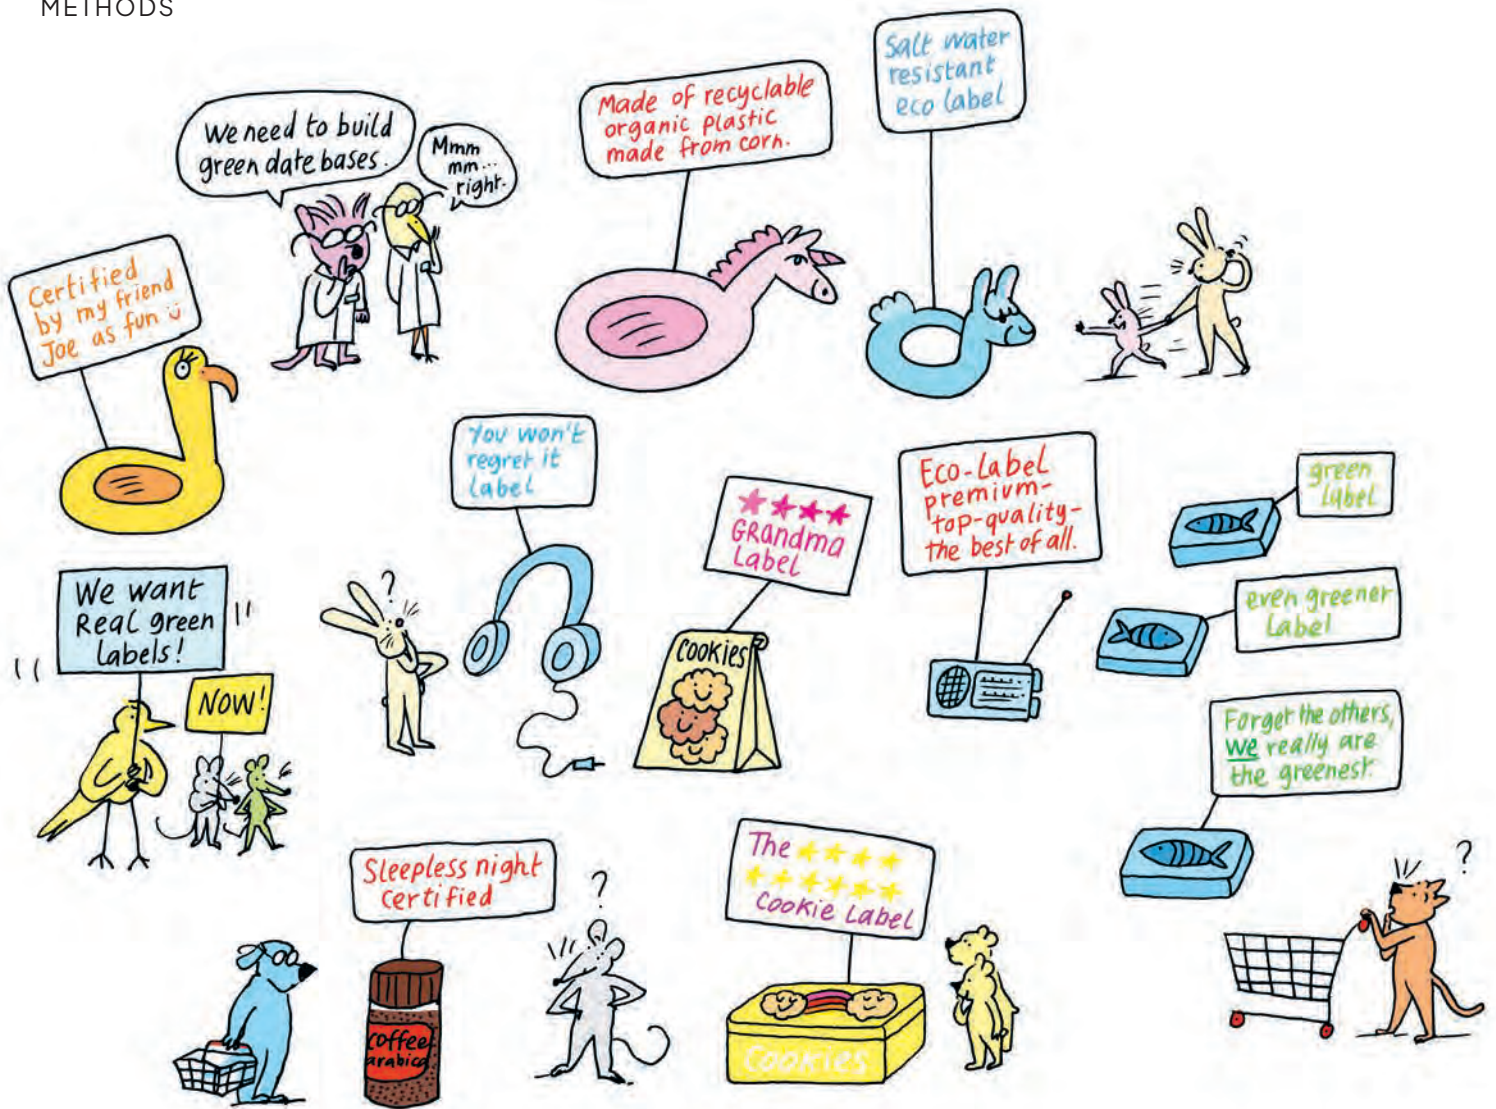 METHODS
We need to build
green date bases.
Mmm
mm...
right.
Made of recyclable
organic plastic
made from corn.
Salt water
resistant
eco label
Certified
by my friend
Joe as fun
You won't
regret it
label
GRandma
Label
COOKIES
Eco-Label
premium-
top-quality-
the best of all.
green
label
even greener
Label
Forget the others,
we really are
the greenest.
We want
Real green
labels!
NOW!
?
Sleepless night
certified
coffee
arabica
?
The
Cookie Label
COOKIES
?